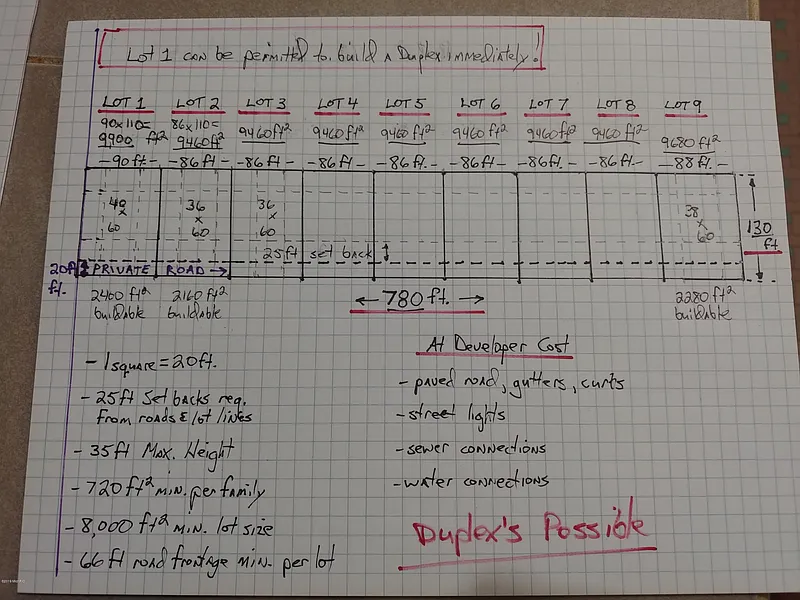 Lot 1 can be permitted to build a Duplex immediately!
LOT 1 LOT 2 LOT 3 LOT 4 LOT 5 LOT 6 LOT 7 LOT 8 LOT 9
90x110= 86x110=
9900 ft² 9460ft² 9460ft² 9460ft² 9460ft² 9460ft² 9460ft² 9460ft² 9680ft²
-90ft- -86ft- -86ft- -86ft- -86ft- -86ft- -86ft- -86ft- -88ft-
40 x 60
36 x 60
36 x 60
38 x 60
130 ft
25ft set back
20ft ft.
PRIVATE ROAD →
2400 ft² buildable
2160 ft² buildable
← 780 ft. →
2280 ft² buildable
- 1 square = 20ft.
- 25ft Set backs req.
From roads & lot lines
- 35ft Max. Height
- 720 ft² min. per family
- 8,000 ft² min. lot size
- 66 ft road frontage min. per lot
At Developer Cost
- paved road, gutters, curbs
- street lights
- sewer connections
- water connections
Duplex's Possible